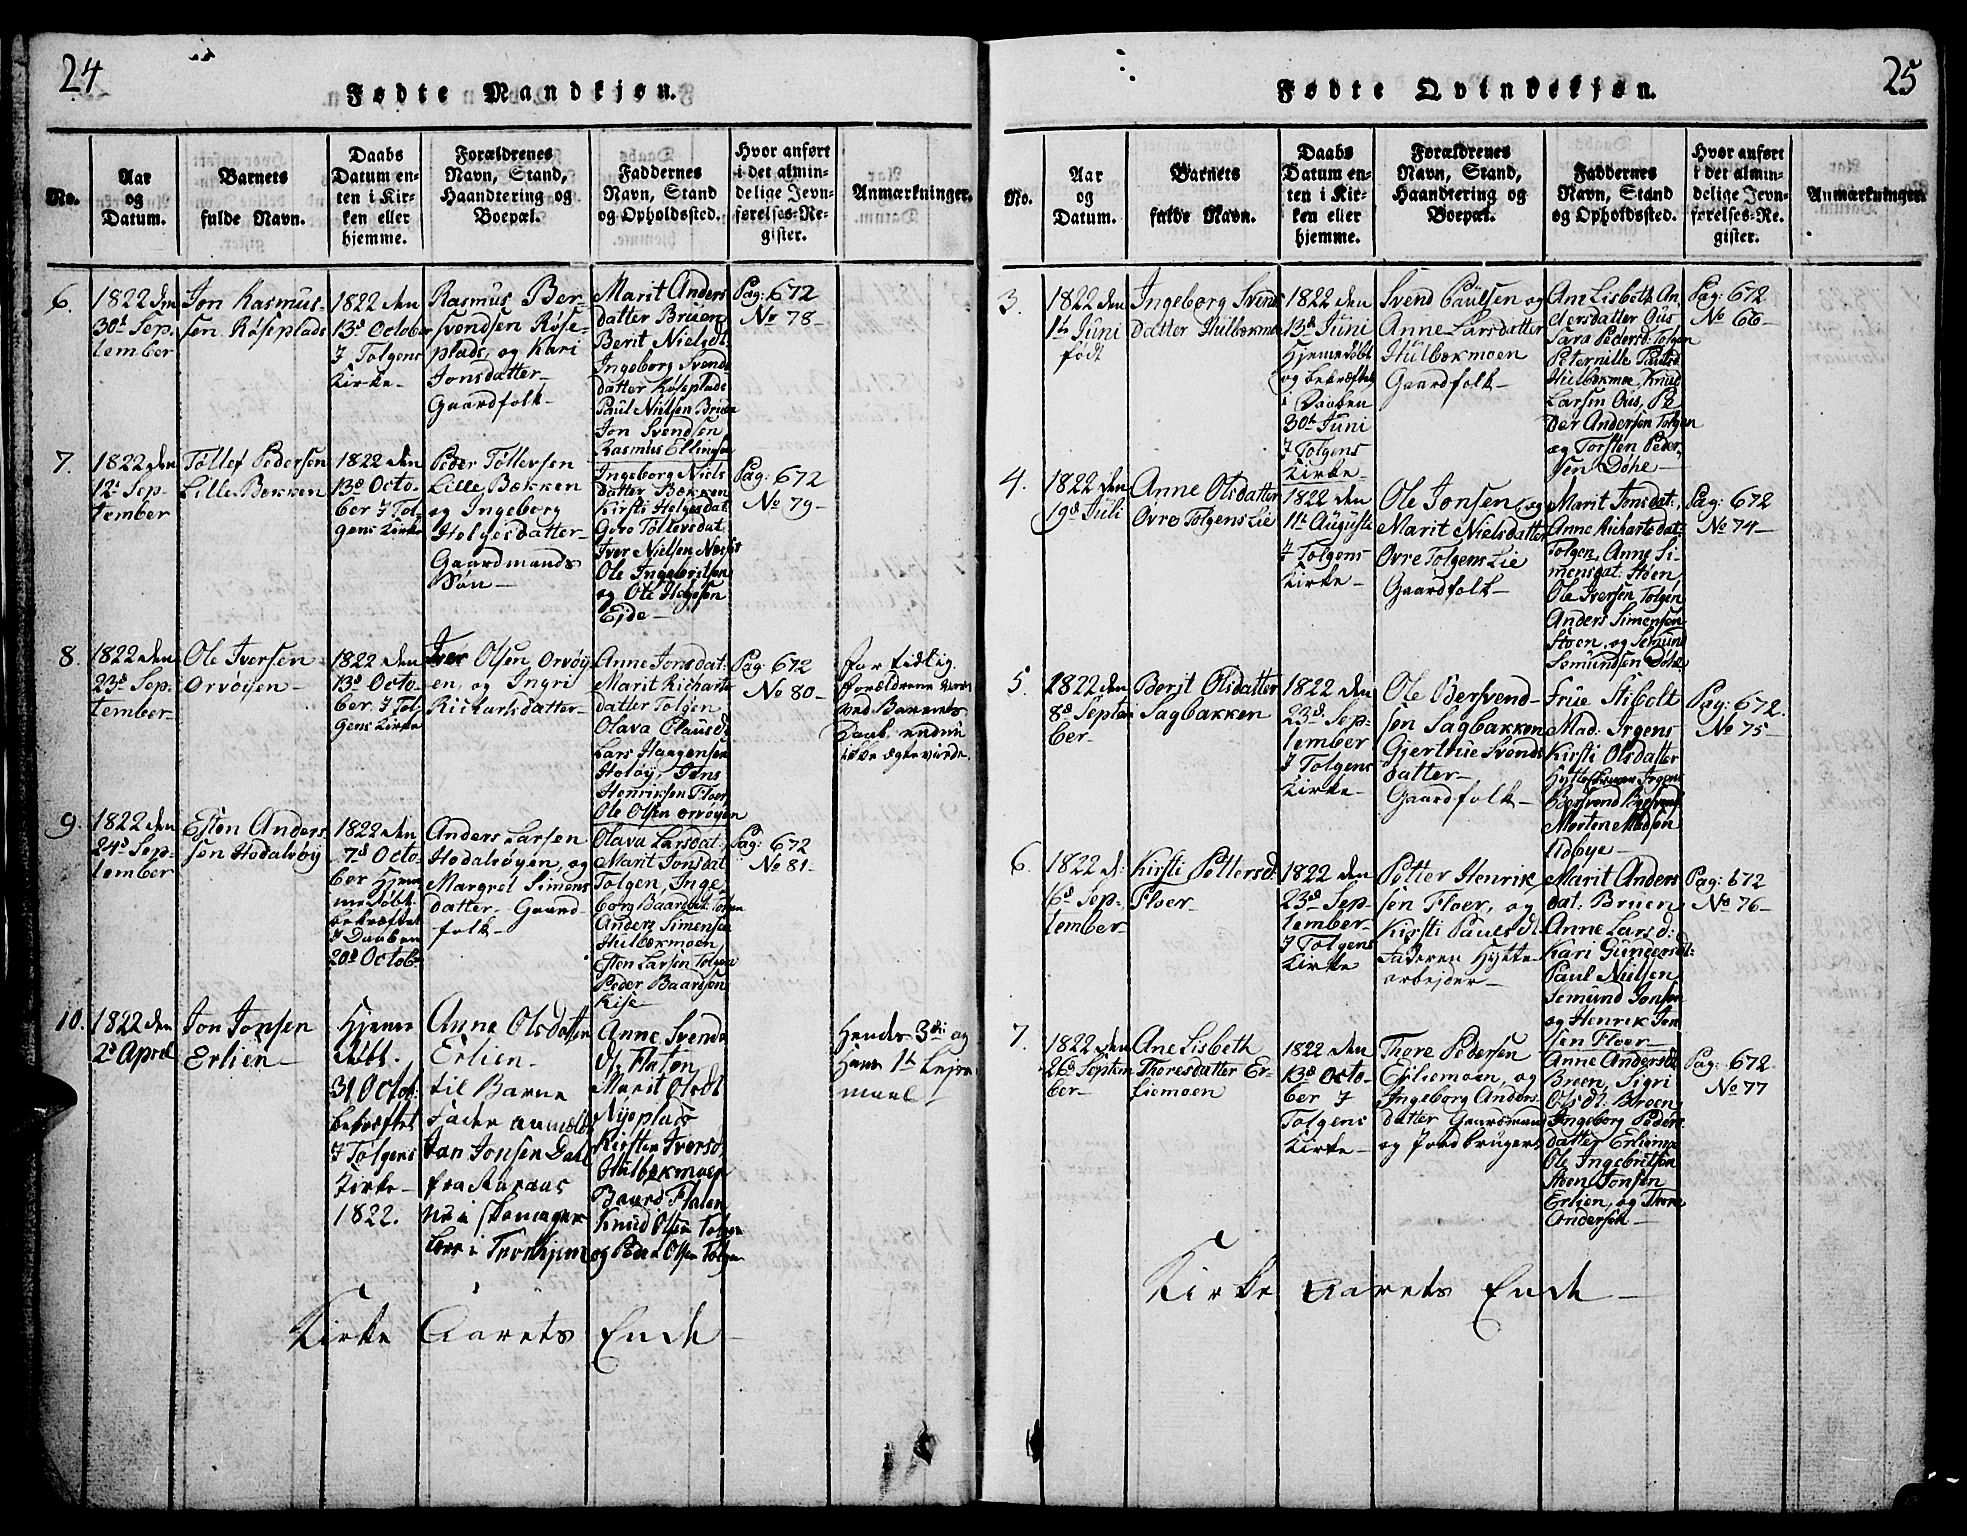 24
Fødte Mandkjøn.
No.
Aar
og
Datum.
Barnets
fulde Navn.
Daabs
Datum en-
ten i Kir-
ken eller
hjemme.
Forældrenes
Navn, Stand,
Haandtering og
Boepæl.
Faddernes
Navn, Stand
og Opholdssted.
Hvor anført
i det almin-
delige Jevn-
førelses-Re-
gister.
Anmærkninger.
6.
1822 den
30te Sep-
tember
Jon Rasmus-
sen Røseplads
1822 den
13de October
I Tolgens
Kirke-
Rasmus Ber-
svendsen Røse-
plads, og Kari
Jonsdatter-
Gaardfolk-
Marit Anders
datter Bruen
Berit Nielsdt
Ingeborg Svends
datter Røseplads
Paul Nielsen Bruen
Jon Svendsen
Rasmus Ellingsen
Pag: 672
No 78-
7.
1822 den
12te Sep-
tember
Tollef Pedersen
Lille Bækken
1822 den
13de Octo-
ber I Tol-
gens Kirke
Peder Tollevsen
Lille Bækken
og Ingeborg
Helgesdatter-
Gaardmands
Søn-
Ingeborg Niels
datter Bækken
Kirsti Helgesdat
Guro Tollevsdat:
Iver Nielsen
Ole Ingebritsen
og Ole Helgesen
Eide-
Pag: 672
No 79-
8.
1822 den
23de Sep-
tember
Ole Iversen
Orvøyen-
1822 den
13de Octo-
ber I Tol-
gens Kirke
Iver Olsen Orvøy-
en, og Ingri
Richartsdatter-
Anne Jonsdat:
Marit Richarts
datter Tolgen
Olava Clausdt
Lars Haagensen
Holøy, Jens
Henriksen Floer
Ole Olsen Orvøyen
Pag: 672
No 80-
For tidlig.
Forældrene vare
ved Barnets
Daab endnu
ikke ægteviede.
9.
1822 den
24de Sep-
tember
Esten Anders
sen Hodalsøy
1822 den
7de Octo
ber Hjem
me døbt
bekræftet
I Daaben
20de Octob.
Anders Larsen
Hodalsøyen, og
Margret Simons
datter- Gaard-
folk-
Olava Larsdat:
Marit Jonsdat
Tolgen, Inge
borg Baardsdt: Tolgen
Anders Simensen
Hulbækmoen,
Esten Larsen Tolgen
Peder Baardsen
Kise-
Pag: 672
No 81-
10.
1822 den
2de April
Jon Jonsen
Erlien-
Hjemme
døbt.
31 Octob:
bekræftet
I Tolgens
Kirke-
1822.
Anne Olsdatter
Erlien-
til Barne
Fader anmeldt
Jon Jonsen Dahl
fra Røraas
nu i
i Tronhjem
Anne Svends
dt. Flaten,
Marit Olsdt
Nyeplads
Kirsten Iversd.
Hulbækmoen
Baard Flaten
Knud Olsen Tolgen
og Peder Olsen Tolgen
Hendes 3die og
Hans 1te Leier
maal.
Kirke Aarets Ende-
25
Fødte Qvindekjøn.
No.
Aar
og
Datum.
Barnets
fulde Navn.
Daabs
Datum en-
ten i Kir-
ken eller
hjemme.
Forældrenes
Navn, Stand,
Haandtering og
Boepæl.
Faddernes
Navn, Stand
og Opholdssted.
Hvor anført
i det almin-
delige Jevn-
førelses-Re-
gister.
Anmærkninger.
3.
1822 den
1te Juni
født
Ingeborg Svends
datter Hulbækmoe
1822 den
13de Juni
Hjemedøbt
og bekræftet
i Daaben
30te Juni
I Tolgens
Kirke-
Svend Paulsen og
Anne Larsdatter
Hulbækmoen
Gaardfolk-
An Lisbeth An
dersdatter Ous
Sara Pedersd: Tolgen
Peternille Paulsd
Hulbækmoe, Knud
Larsen Ous, Pe
der Andersen Tolgen
og Torsten Peder-
sen Døhe-
Pag: 672
No 66-
4.
1822 den
19de Juli
Anne Olsdatter
Øvre Tolgens Lie
1822 den
11te Auguste
I Tolgens
Kirke-
Ole Jonsen, og
Marit Nielsdatter
Øvre Tolgens Lie
Gaardfolk-
Marit Jonsdat:,
Anne Richartsdat:
Tolgen, Anne Si-
mensdat: Støen,
Ole Iversen Tolgen
Anders Simensen
Støen, og Semund
Semundsen Døhe
Pag: 672
No 74-
5.
1822 den
8de Septem
ber-
Berit Olsdatter
Sagbakken
1822 den
23de Sep-
tember
I Tolgens
Kirke-
Ole Bersvend-
sen Sagbakken
Gjertrue Svends
datter-
Gaardfolk-
Frue Stibolt
Mad: Irgens
Kirsti Olsdatter
Irgens
Bersvend Bersvends
Morten Madsen
Lidbye-
Pag: 672.
No 75-
6.
1822 d:
16de Sep-
tember-
Kirsti Pettersd
Floer-
1822 den
23de Sep-
tember-
I Tolgens
Kirke
Petter Henrik
sen Floer, og
Kirsti Paulsdt
Faderen Hytte-
arbejder-
Marit Anders
dat: Bruen
Anne Larsd:
Kari Gundersdt:
Paul Nielsen
Semund Jonsen
og Henrik Jon
sen Floer-
Pag: 672
No 76-
7.
1822 den
26de Septem
ber-
Ane Lisbeth
Thoresdatter Er-
liemoen
1822 den
13de Octo-
ber I
Tolgens
Kirke-
Thore Pedersen
Erliemoen, og
Ingeborg Anders
datter Gaardmand
og Jordbruger
Anne Andersdt
Bruen, Sigri
Olsdt: Bruen,
Ingeborg Peders
datter Erliemoe
Ole Ingebritsen
Støen Jonsen
Erlien, og Thore
Andersen-
Pag: 672
No 77
Kirke Aarets Ende-